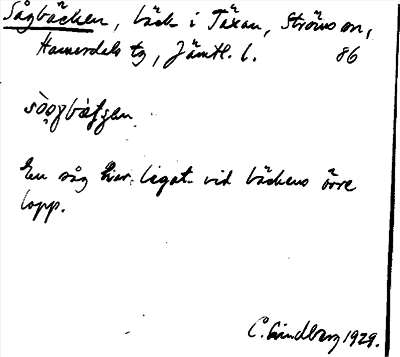 Sågbäcken, bäck i Täxan, Ströms sn,
Hammerdals tg, Jämtl. l. 86
En såg har legat vid bäckens övre
lopp.
C. Lindberg 1929.